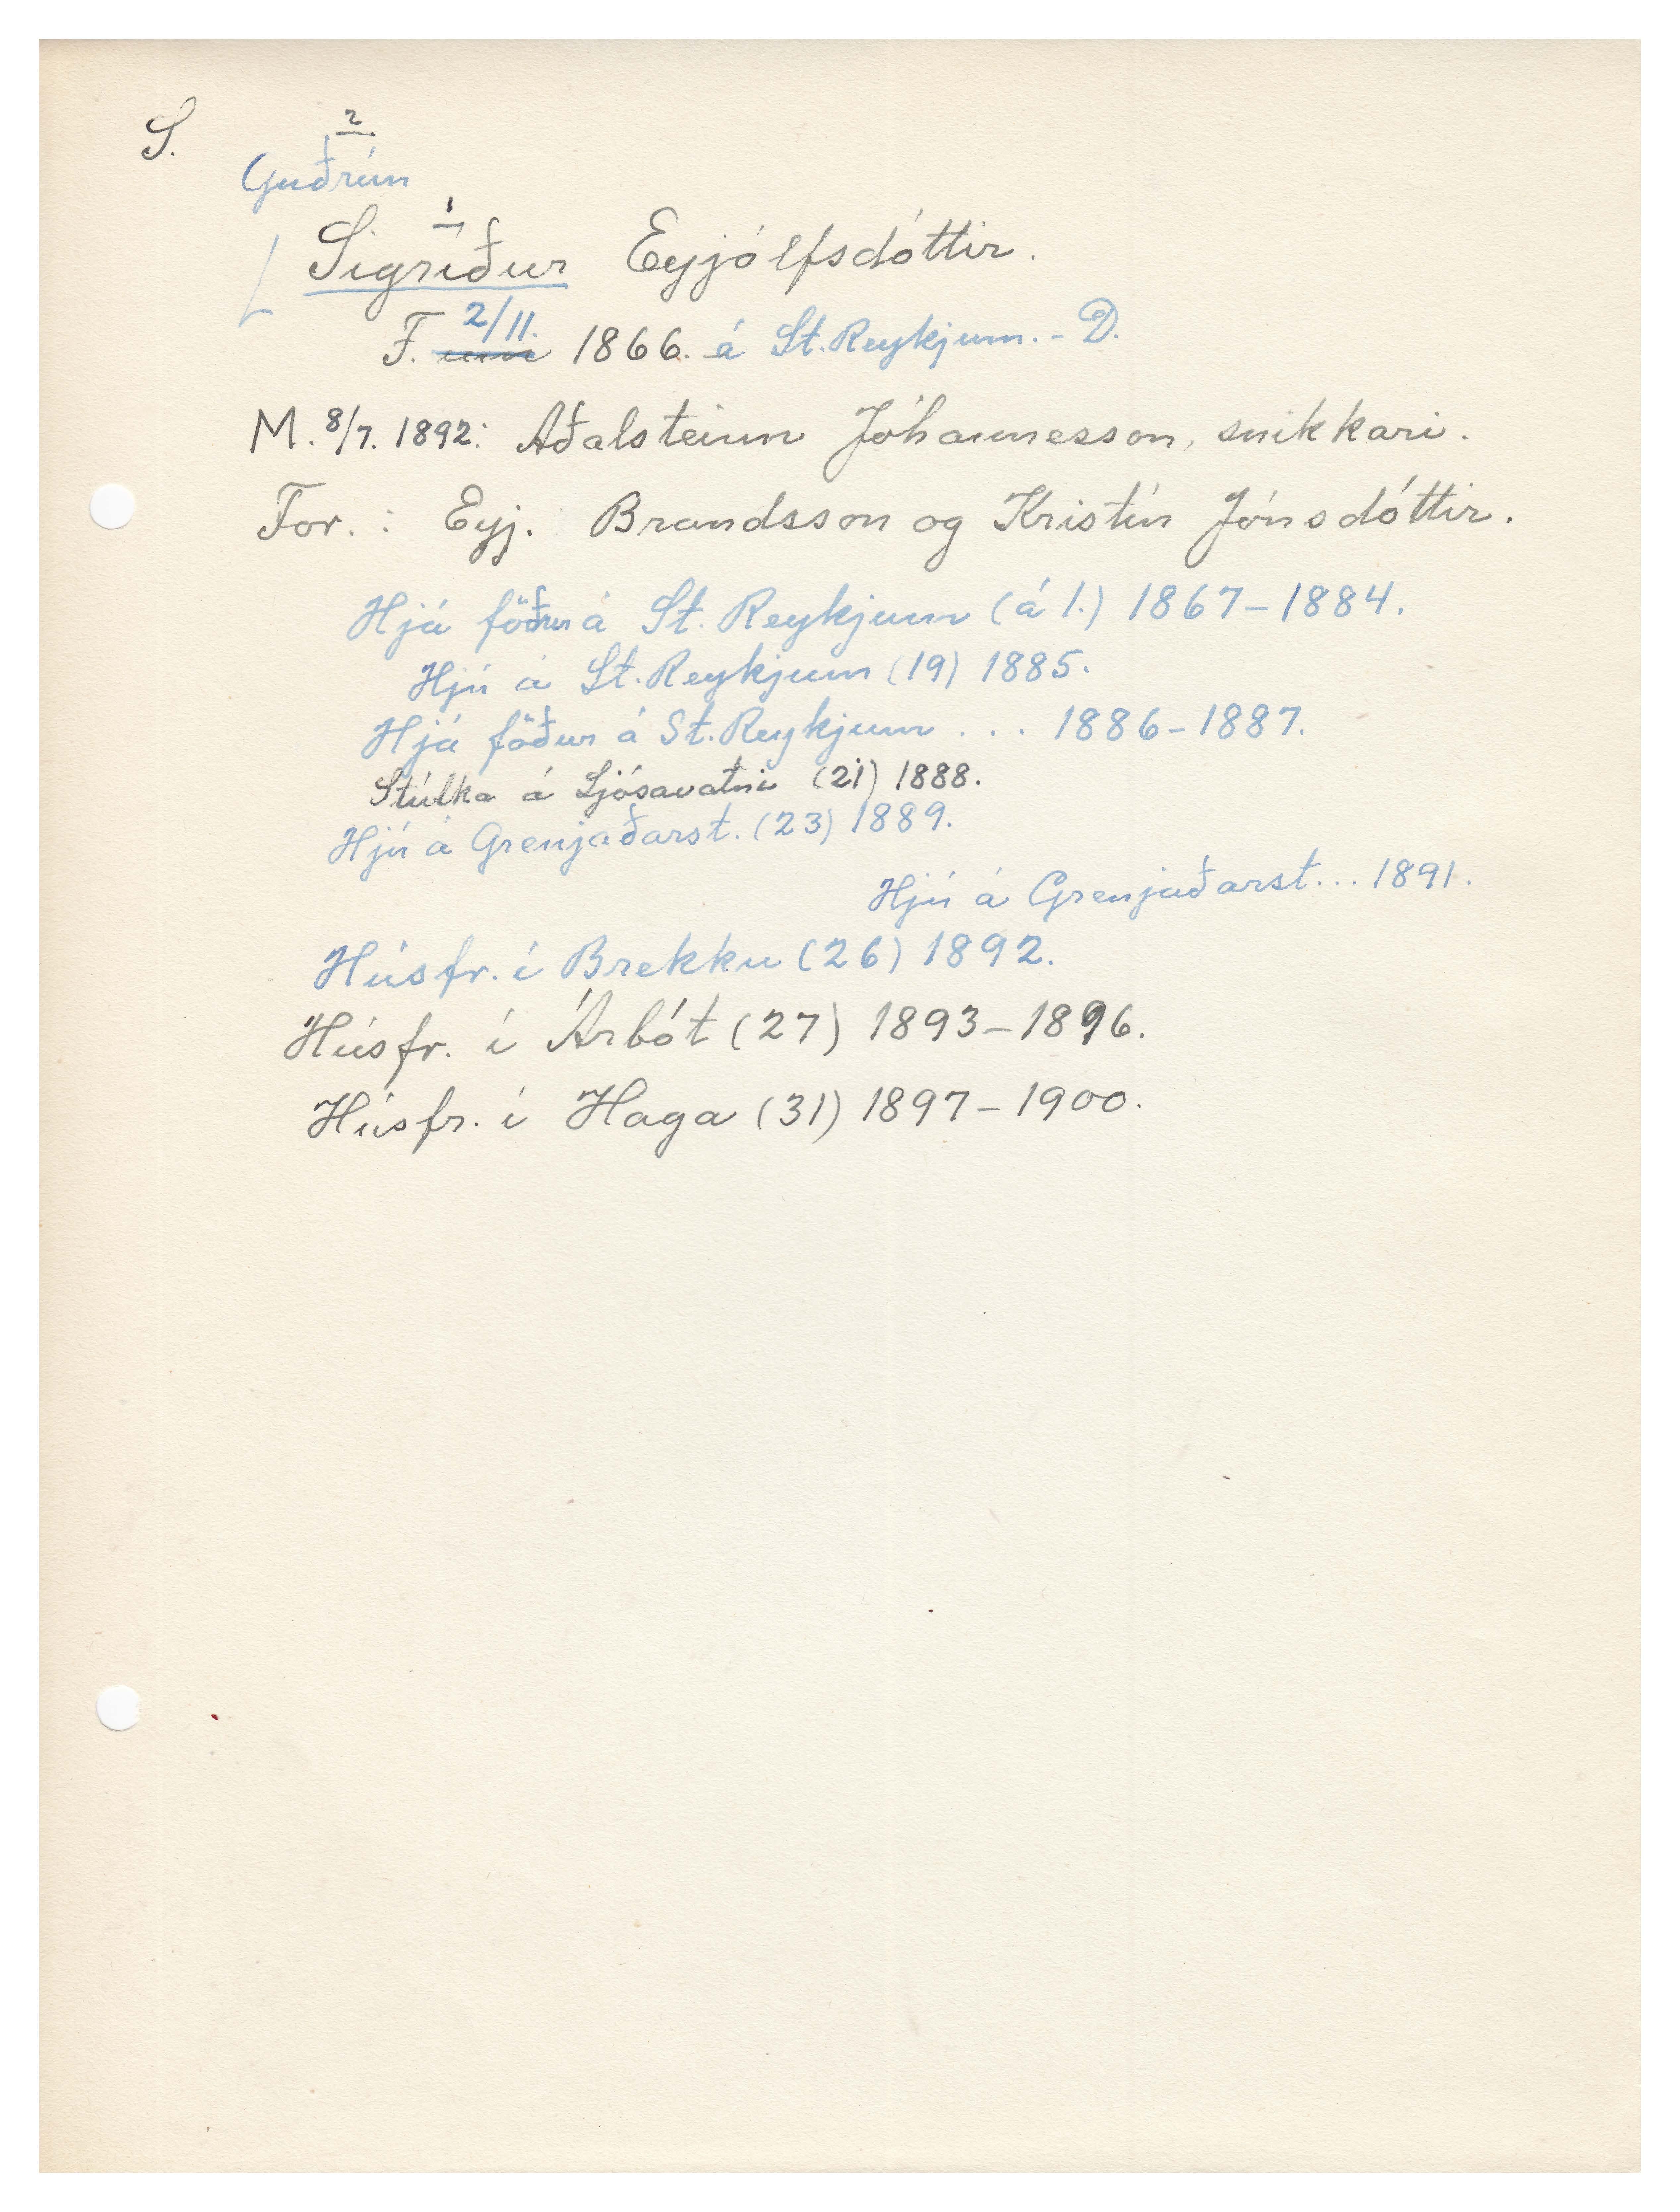 S.
2
Guðrún
1
Sigríður Eyjólfsdóttir.
2/11.
F. um 1866. á St. Reykjum. - D.
M. 8/7. 1892: Aðalsteinn Jóhannesson, snikkari.
For. : Eyj. Brandsson og Kristín Jónsdóttir.
Hjá föður á St. Reykjum (á 1.) 1867-1884.
Hjú á St. Reykjum (19) 1885.
Hjá föður á St. Reykjum ... 1886-1887.
Stúlka á Ljósavatni (21) 1888.
Hjú á Grenjaðarst. (23) 1889.
Hjú á Grenjaðarst... 1891.
Húsfr. í Brekku (26) 1892.
Húsfr. í Árbót (27) 1893-1896.
Húsfr. í Haga (31) 1897-1900.